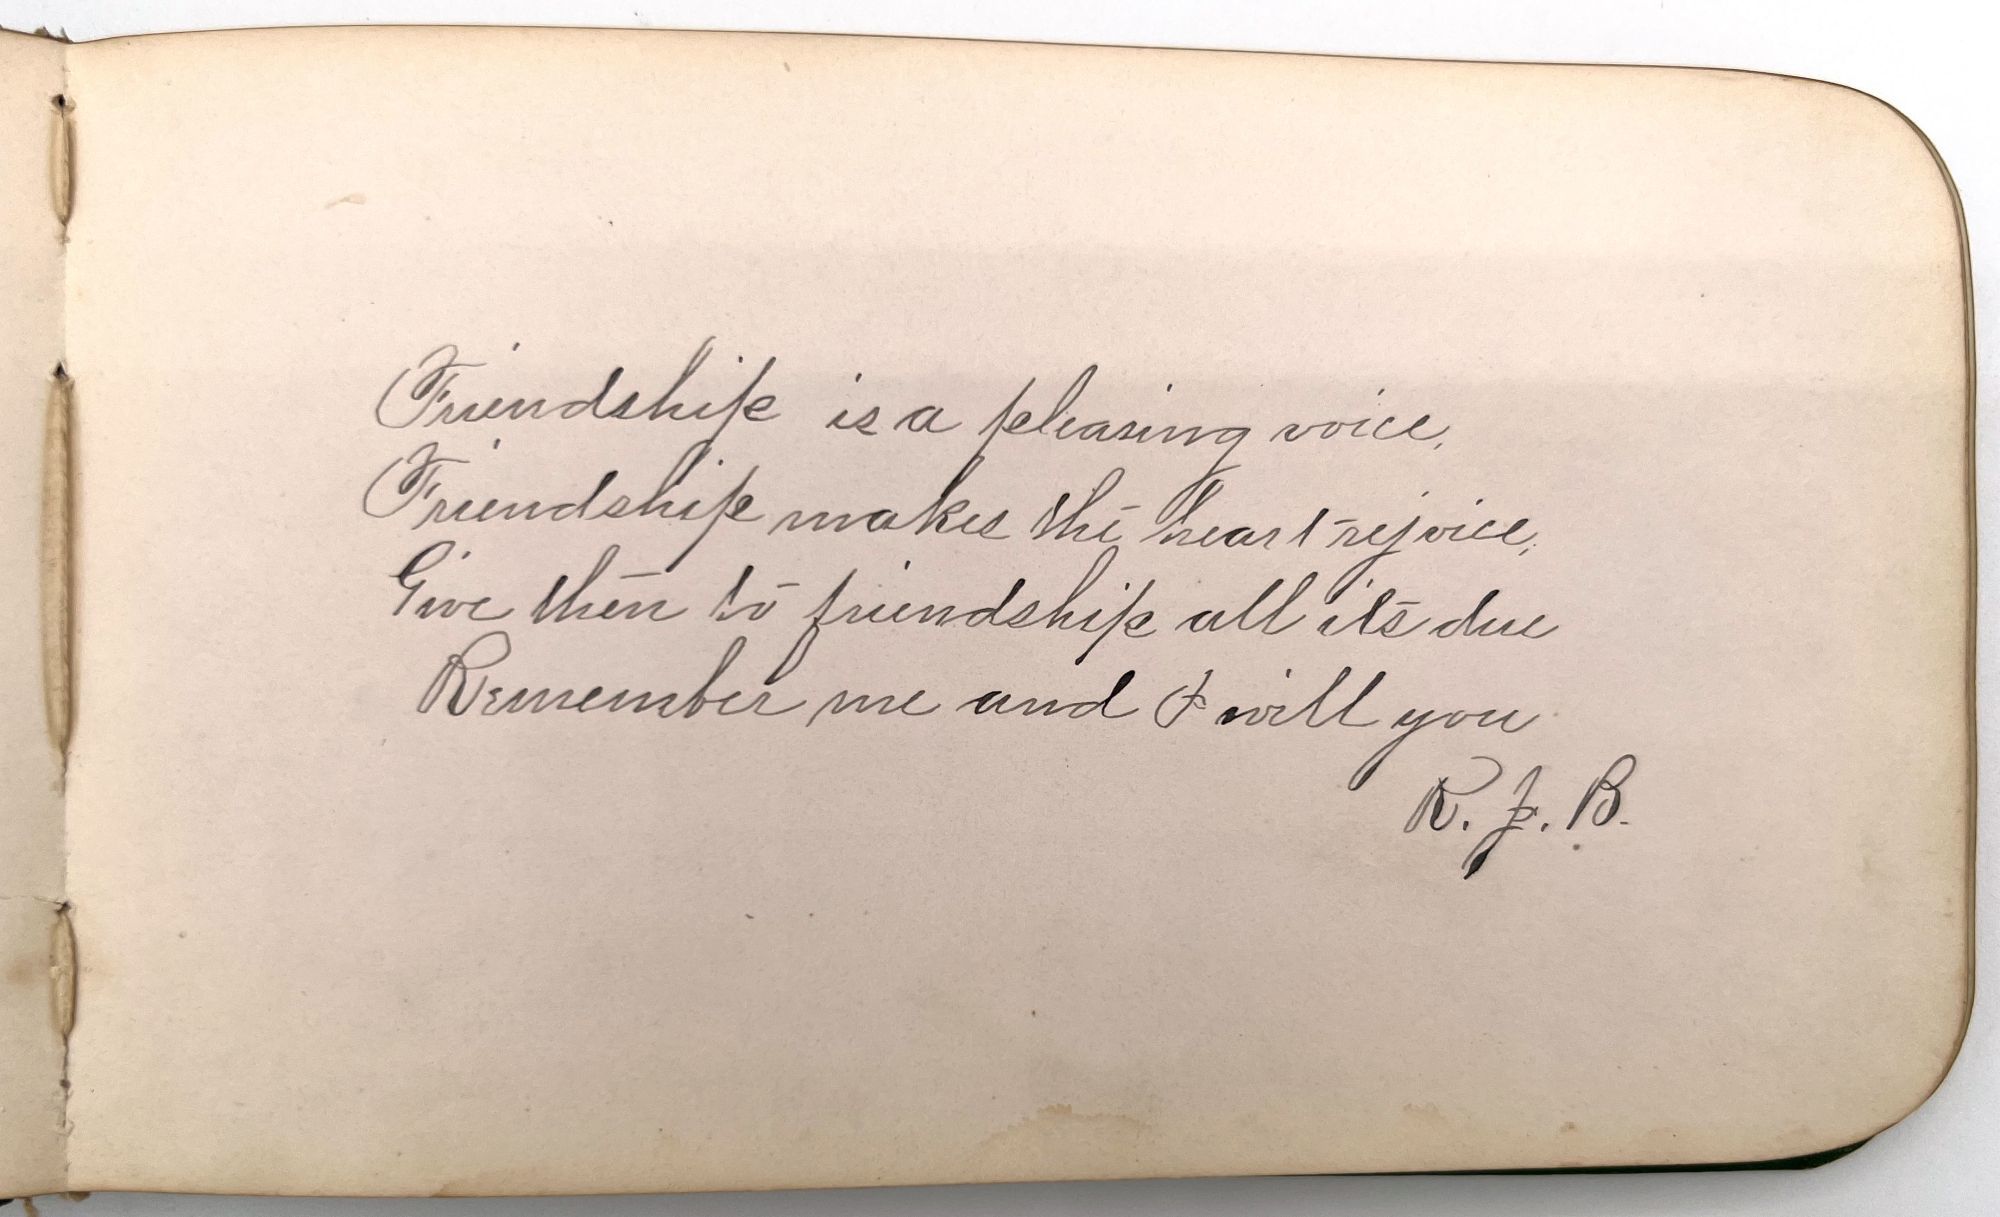 Friendship is a pleasing voice,
Friendship makes the heart rejoice,
Give then to friendship all its due
Remember me and I will you
R. J. B.